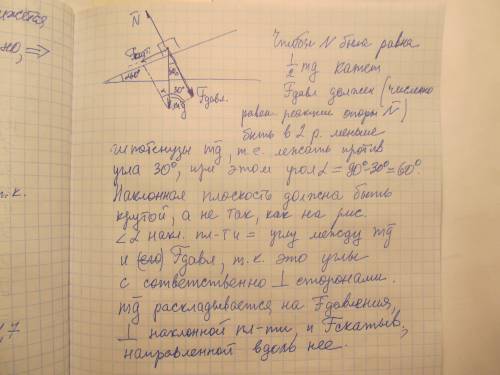 ижется,
но, =>
N̄
Fскат.
∠60°
60°
30°
α
mg
Fдавл.
Чтобы N была равна
½ mg катет
Fдавл должен (числено
равен реакции опоры N̄)
быть в 2 р. меньше
гипотенузы mg, т.е. лежать против
угла 30°, при этом угол α = 90°-30°=60°.
Наклонная плоскость должна быть
крутой, а не так, как на рис.
∠α накл. пл-ти = углу между mg
и Fдавл, т.к. это углы
с соответственно ⊥ сторонами.
mg раскладывается на Fдавления,
⊥ наклонной пл-ти, и Fскатыв,
направленной вдоль нее.
т.к.
1,7